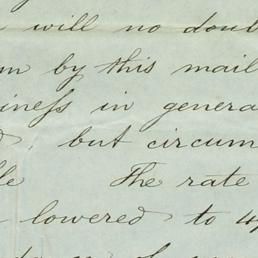 will no doub
m by this mail
iness in genera
, but circum
le The rate
lowered to 4